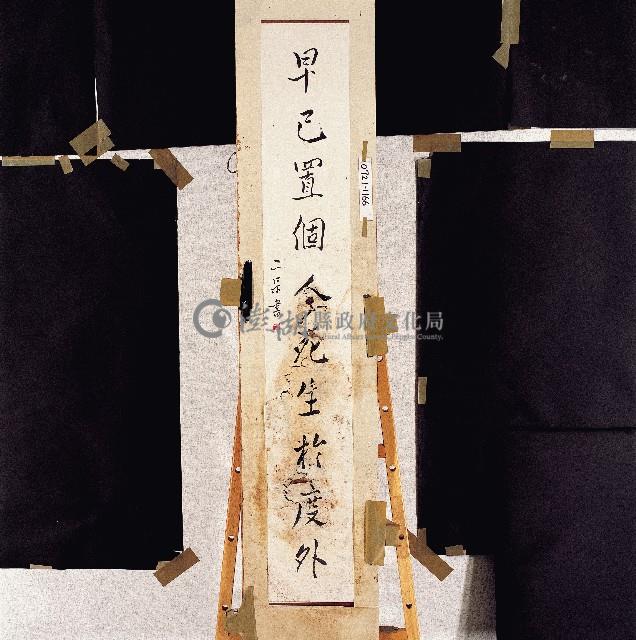 早已置個人死生於度外
二呆書
澎湖縣政府文化局